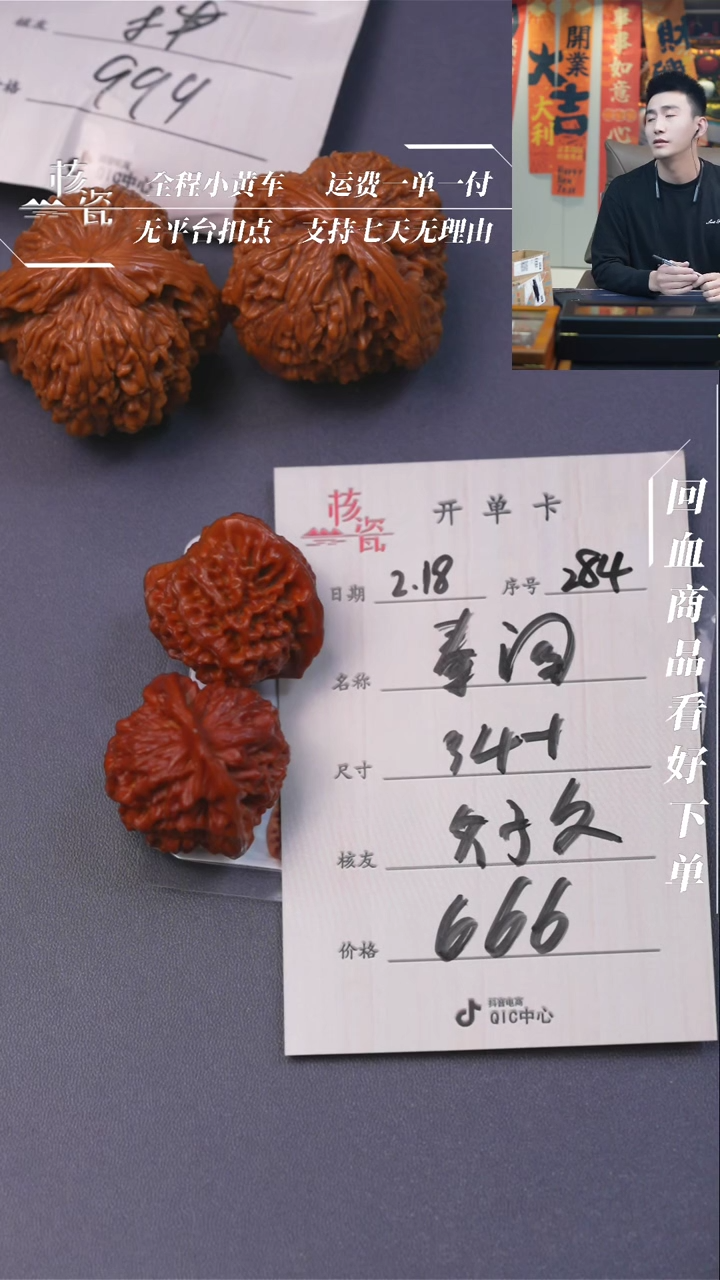 核友
价格
999
核瓷
全程小黄车 运费一单一付
无平台扣点 支持七天无理由
開業
大吉
大利
Happy
New
Year
事事如意
财
回血商品看好下单
核瓷
开单卡
日期 2.18 序号 284
名称
尺寸 34+
核友
价格 666
抖音电商
QIC中心